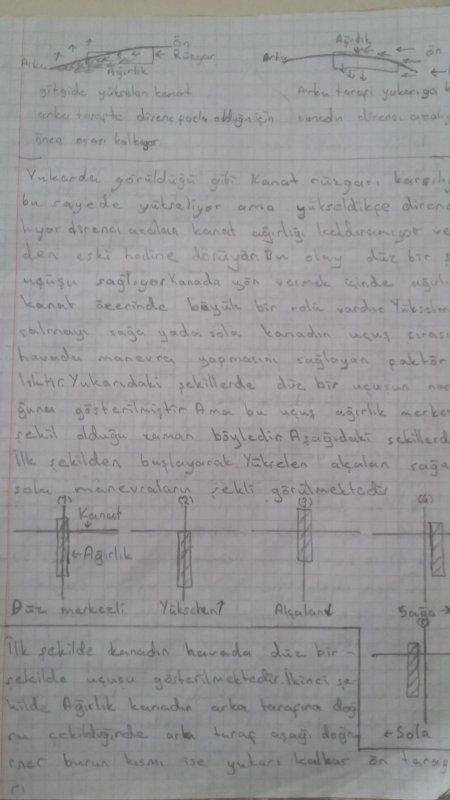 Ön
Rüzgar
Arka
Ağırlık
gitgide yükselen kanat
arka tarafta direnç fazla olduğu için
önce aşarı kalkıyor
Ağırlık
Ön
Arka
Arka tarafı yukarıya
direnci
Yukarda görüldüğü gibi Kanat rüzgarı
bu sayede yükseliyor ama yükseldikçe
direnci azalan kanat ağırlığı kaldıramıyor ve
den eski haline dönüyor. Bu olay düz bir
uçuşu sağlıyor Kanada yön vermek içinde
kanat üzerinde büyük bir rolü vardır
alçalmayı sağa yada sola kanadın uçuş
havada manevra yapmasını sağlayan faktör
Yukarıdaki şekillerde düz bir uçuşun
gösterilmiştir Ama bu uçuş ağırlık
şekil olduğu zaman böyledir Aşağıdaki
İlk şekilden başlayarak Yükselen alçalan sağa
sola manevraların şekli görülmektedir
(1)
(2)
(3)
(4)
Kanat
Ağırlık
Düz merkezli
Yükselen
Alçalan
Sağa
İlk şekilde kanadın havada düz bir
şekilde uçuşu gösterilmektedir. İkinci şe-
kilde Ağırlık kanadın arka tarafına doğ
ru çekildiğinde arka taraf aşağı doğru
iner burun kısmı ise yukarı kalkar ön
Sola